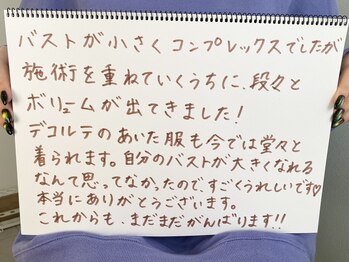 バストが小さくコンプレックスでしたが
施術を重ねていくうちに、段々と
ボリュームが出てきました！
デコルテのあいた服も今では堂々と
着られます。自分のバストが大きくなれる
なんて思ってなかったので、すごくうれしいです♡
本当にありがとうございます。
これからも、まだまだがんばります!!